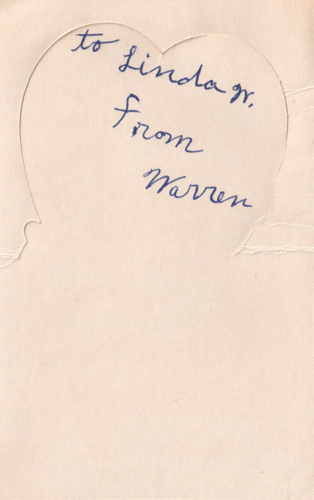 to Linda W.
From
Warren